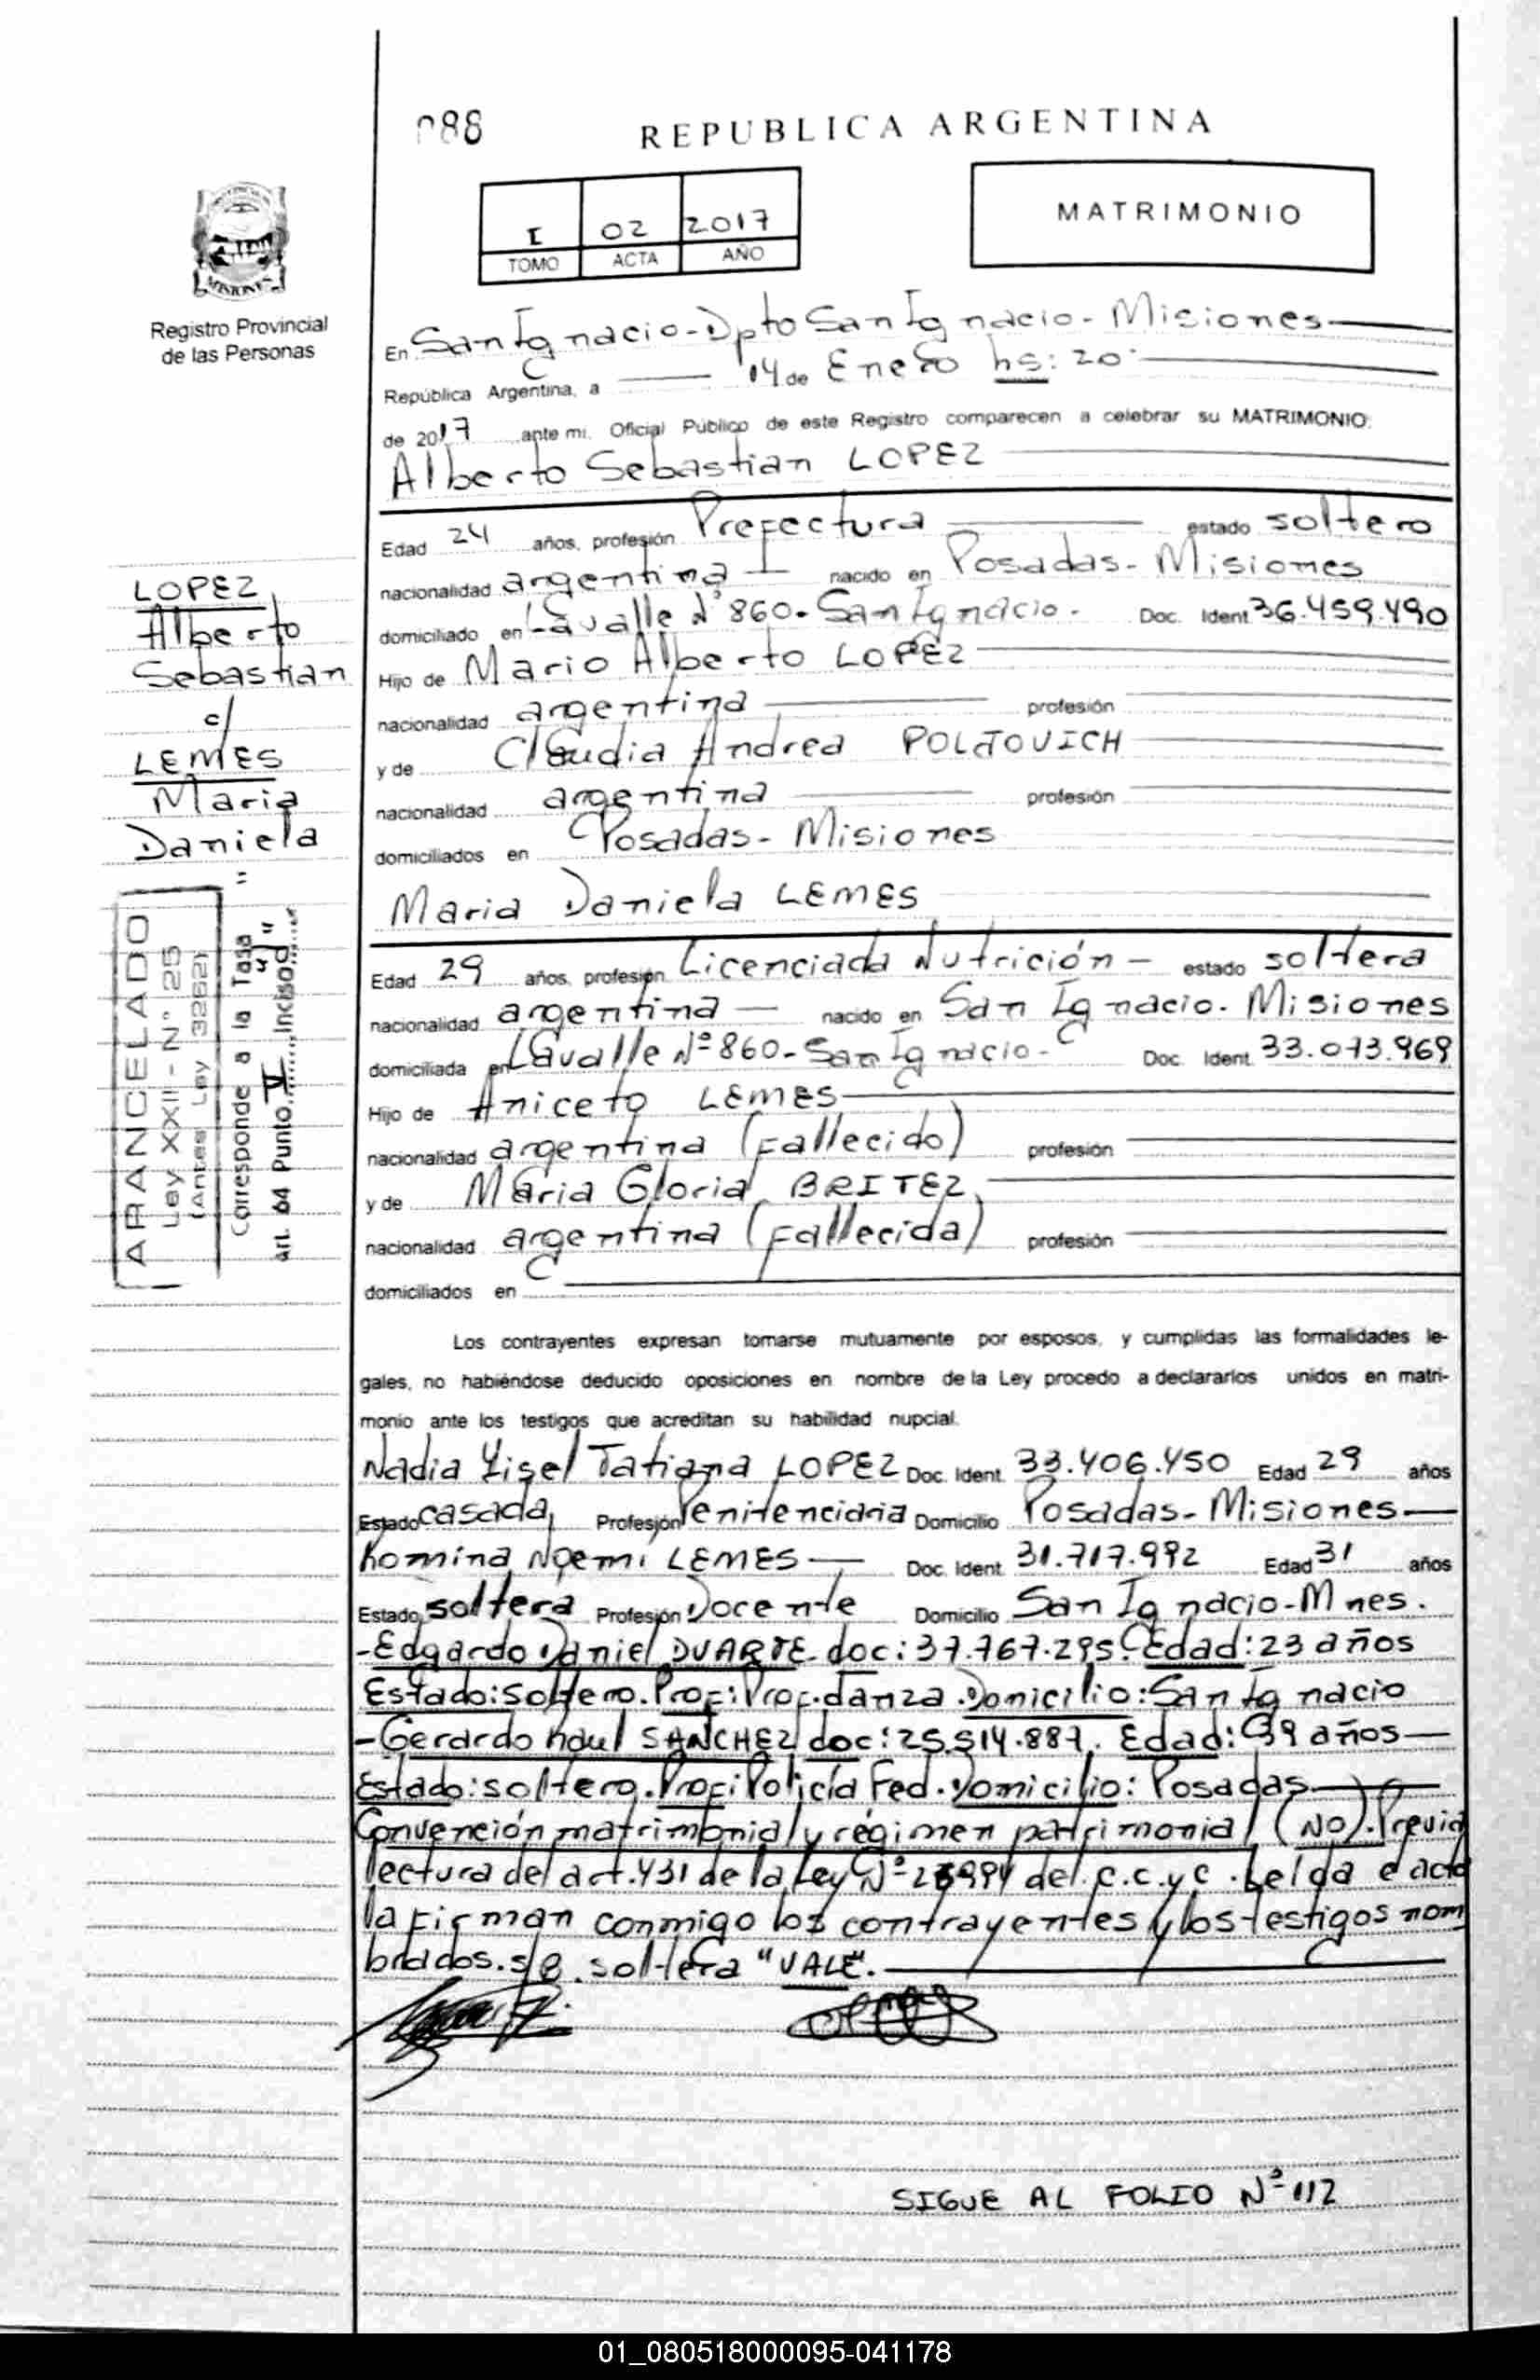 088
REPUBLICA ARGENTINA
I 02 2017
TOMO ACTA AÑO
MATRIMONIO
MISIONES
Registro Provincial
de las Personas
En San Ignacio-Dpto San Ignacio-Misiones
República Argentina, a 14 de Enero hs: 20
de 2017 ante mi, Oficial Público de este Registro comparecen a celebrar su MATRIMONIO:
Alberto Sebastian LOPEZ
Edad 24 años, profesión Prefectura estado soltero
nacionalidad argentina nacido en Posadas-Misiones
domiciliado en Lavalle N°860-San Ignacio- Doc. Ident 36.459.490
Hijo de Mario Alberto LOPEZ
nacionalidad argentina profesión
y de Claudia Andrea POLJOVICH
nacionalidad argentina profesión
domiciliados en Posadas-Misiones
Maria Daniela LEMES
Edad 29 años, profesión Licenciada Nutrición - estado soltera
nacionalidad argentina nacido en San Ignacio. Misiones
domiciliada en Lavalle Nº860-San Ignacio- Doc. Ident. 33.073.969
Hijo de Aniceto LEMES
nacionalidad argentina (fallecido) profesión
y de Maria Gloria BRITEZ
nacionalidad argentina (fallecida) profesión
domiciliados en
LOPEZ
Alberto
Sebastian
c/
LEMES
Maria
Daniela
ARANCELADO
Ley XXII - N° 25
(Antes Ley 3262)
Corresponde a la Tasa
art. 64 Punto. V Inciso
Los contrayentes expresan tomarse mutuamente por esposos, y cumplidas las formalidades le-
gales, no habiéndose deducido oposiciones en nombre de la Ley procedo a declararlos unidos en matri-
monio ante los testigos que acreditan su habilidad nupcial.
Nadia Yisel Tatiana LOPEZ Doc. Ident. 33.406.450 Edad 29 años
Estado casada Profesión Penitenciaria Domicilio Posadas-Misiones
Romina Noemi LEMES Doc. Ident. 31.717.992 Edad 31 años
Estado soltera Profesión Docente Domicilio San Ignacio-Mnes.
-Edgardo Daniel DUARTE doc: 37.767.295. Edad: 23 años
Estado: soltero. Prof: Prof. danza. Domicilio: San Ignacio
-Gerardo Raul SANCHEZ doc: 25.514.887. Edad: 39 años
Estado: soltero. Prof: Policía Fed. Domicilio: Posadas
Convención matrimonial y régimen patrimonial (NO). Previa
lectura del art. 431 de la Ley Nº 26994 del C.C.y C. Leída el acta
la firman conmigo los contrayentes y los testigos nom
brados. s/B. soltera "VALE".
SIGUE AL FOLIO Nº 112
01_080518000095-041178